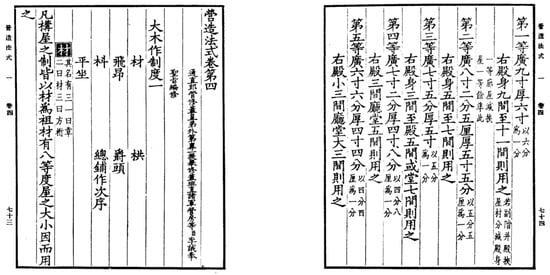 營造法式卷第四
通直郎管修蓋皇弟外第專一提舉修蓋班直諸軍營房等臣李誡奉
聖旨編修
大木作制度一
材 栱
飛昂 爵頭
枓 總鋪作次序
平坐
材 其名有三一曰章
二曰材三曰方桁
凡構屋之制皆以材爲祖材有八等度屋之大小因而用
之
營造法式 一 卷四 七十三
第一等廣九寸厚六寸 以六分爲一分
右殿身九間至十一間則用之 若副階并殿挾屋材分減殿身
一等廊屋減挾屋一等餘準此
第二等廣八寸二分五厘厚五寸五分 以五分五厘爲一分
右殿身五間至七間則用之
第三等廣七寸五分厚五寸 以五分爲一分
右殿身三間至殿五間或堂七間則用之
第四等廣七寸二分厚四寸八分 以四分八厘爲一分
右殿三間廳堂五間則用之
第五等廣六寸六分厚四寸四分 以四分四厘爲一分
右殿小三間廳堂大三間則用之
營造法式 一 卷四 七十四